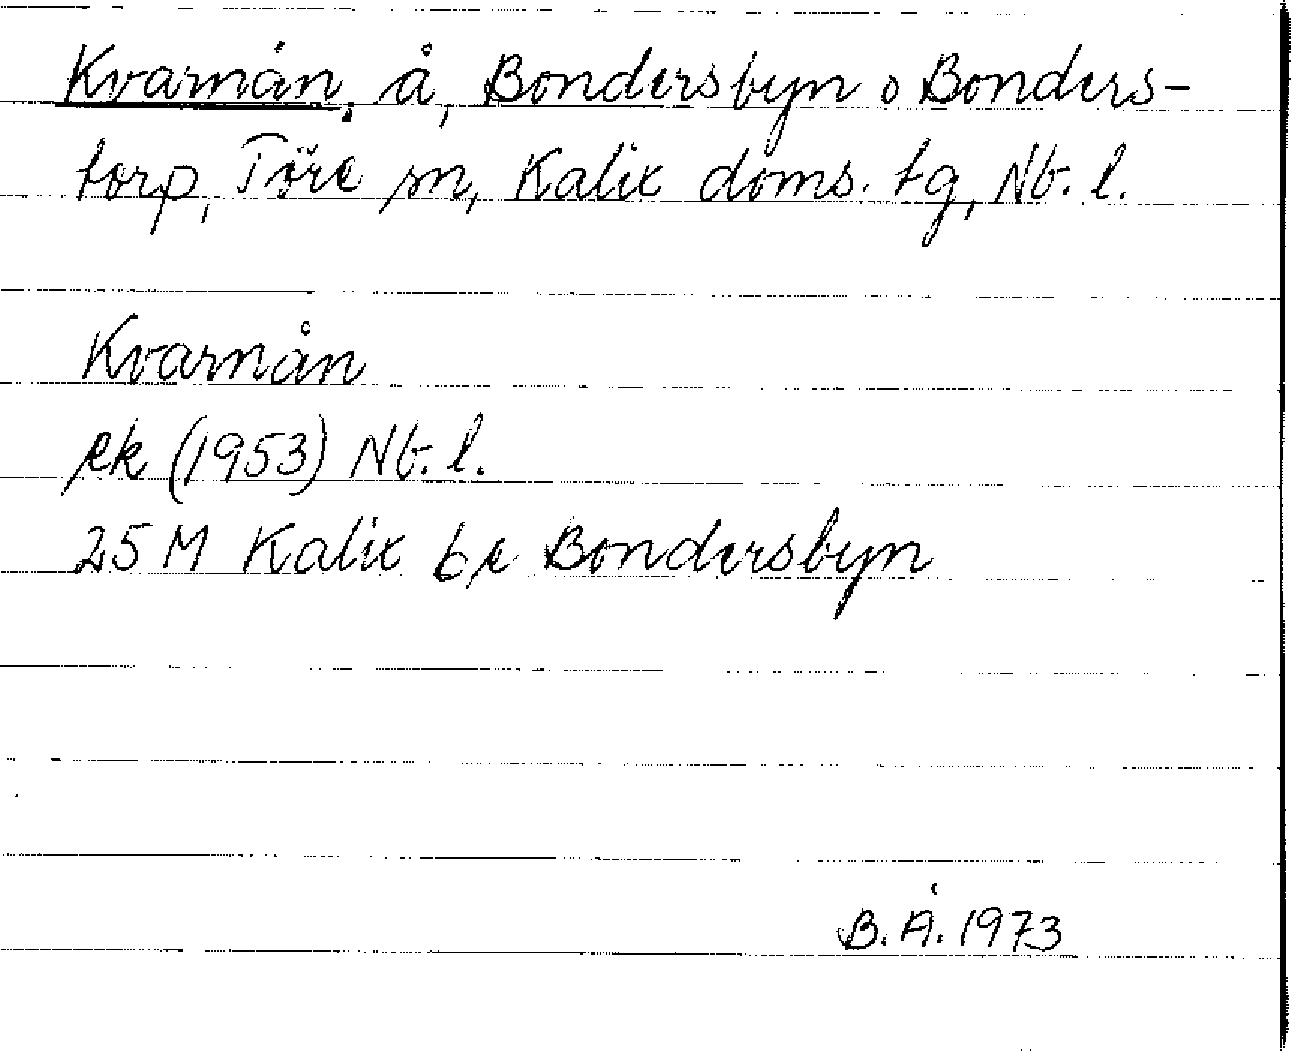 Kvarnån, å, Bondersbyn o Bonders-
torp, Töre sn, Kalix doms. tg, Nb. l.
Kvarnån
ek (1953) Nb. l.
25 M Kalix 6 e Bondersbyn
B. Å. 1973